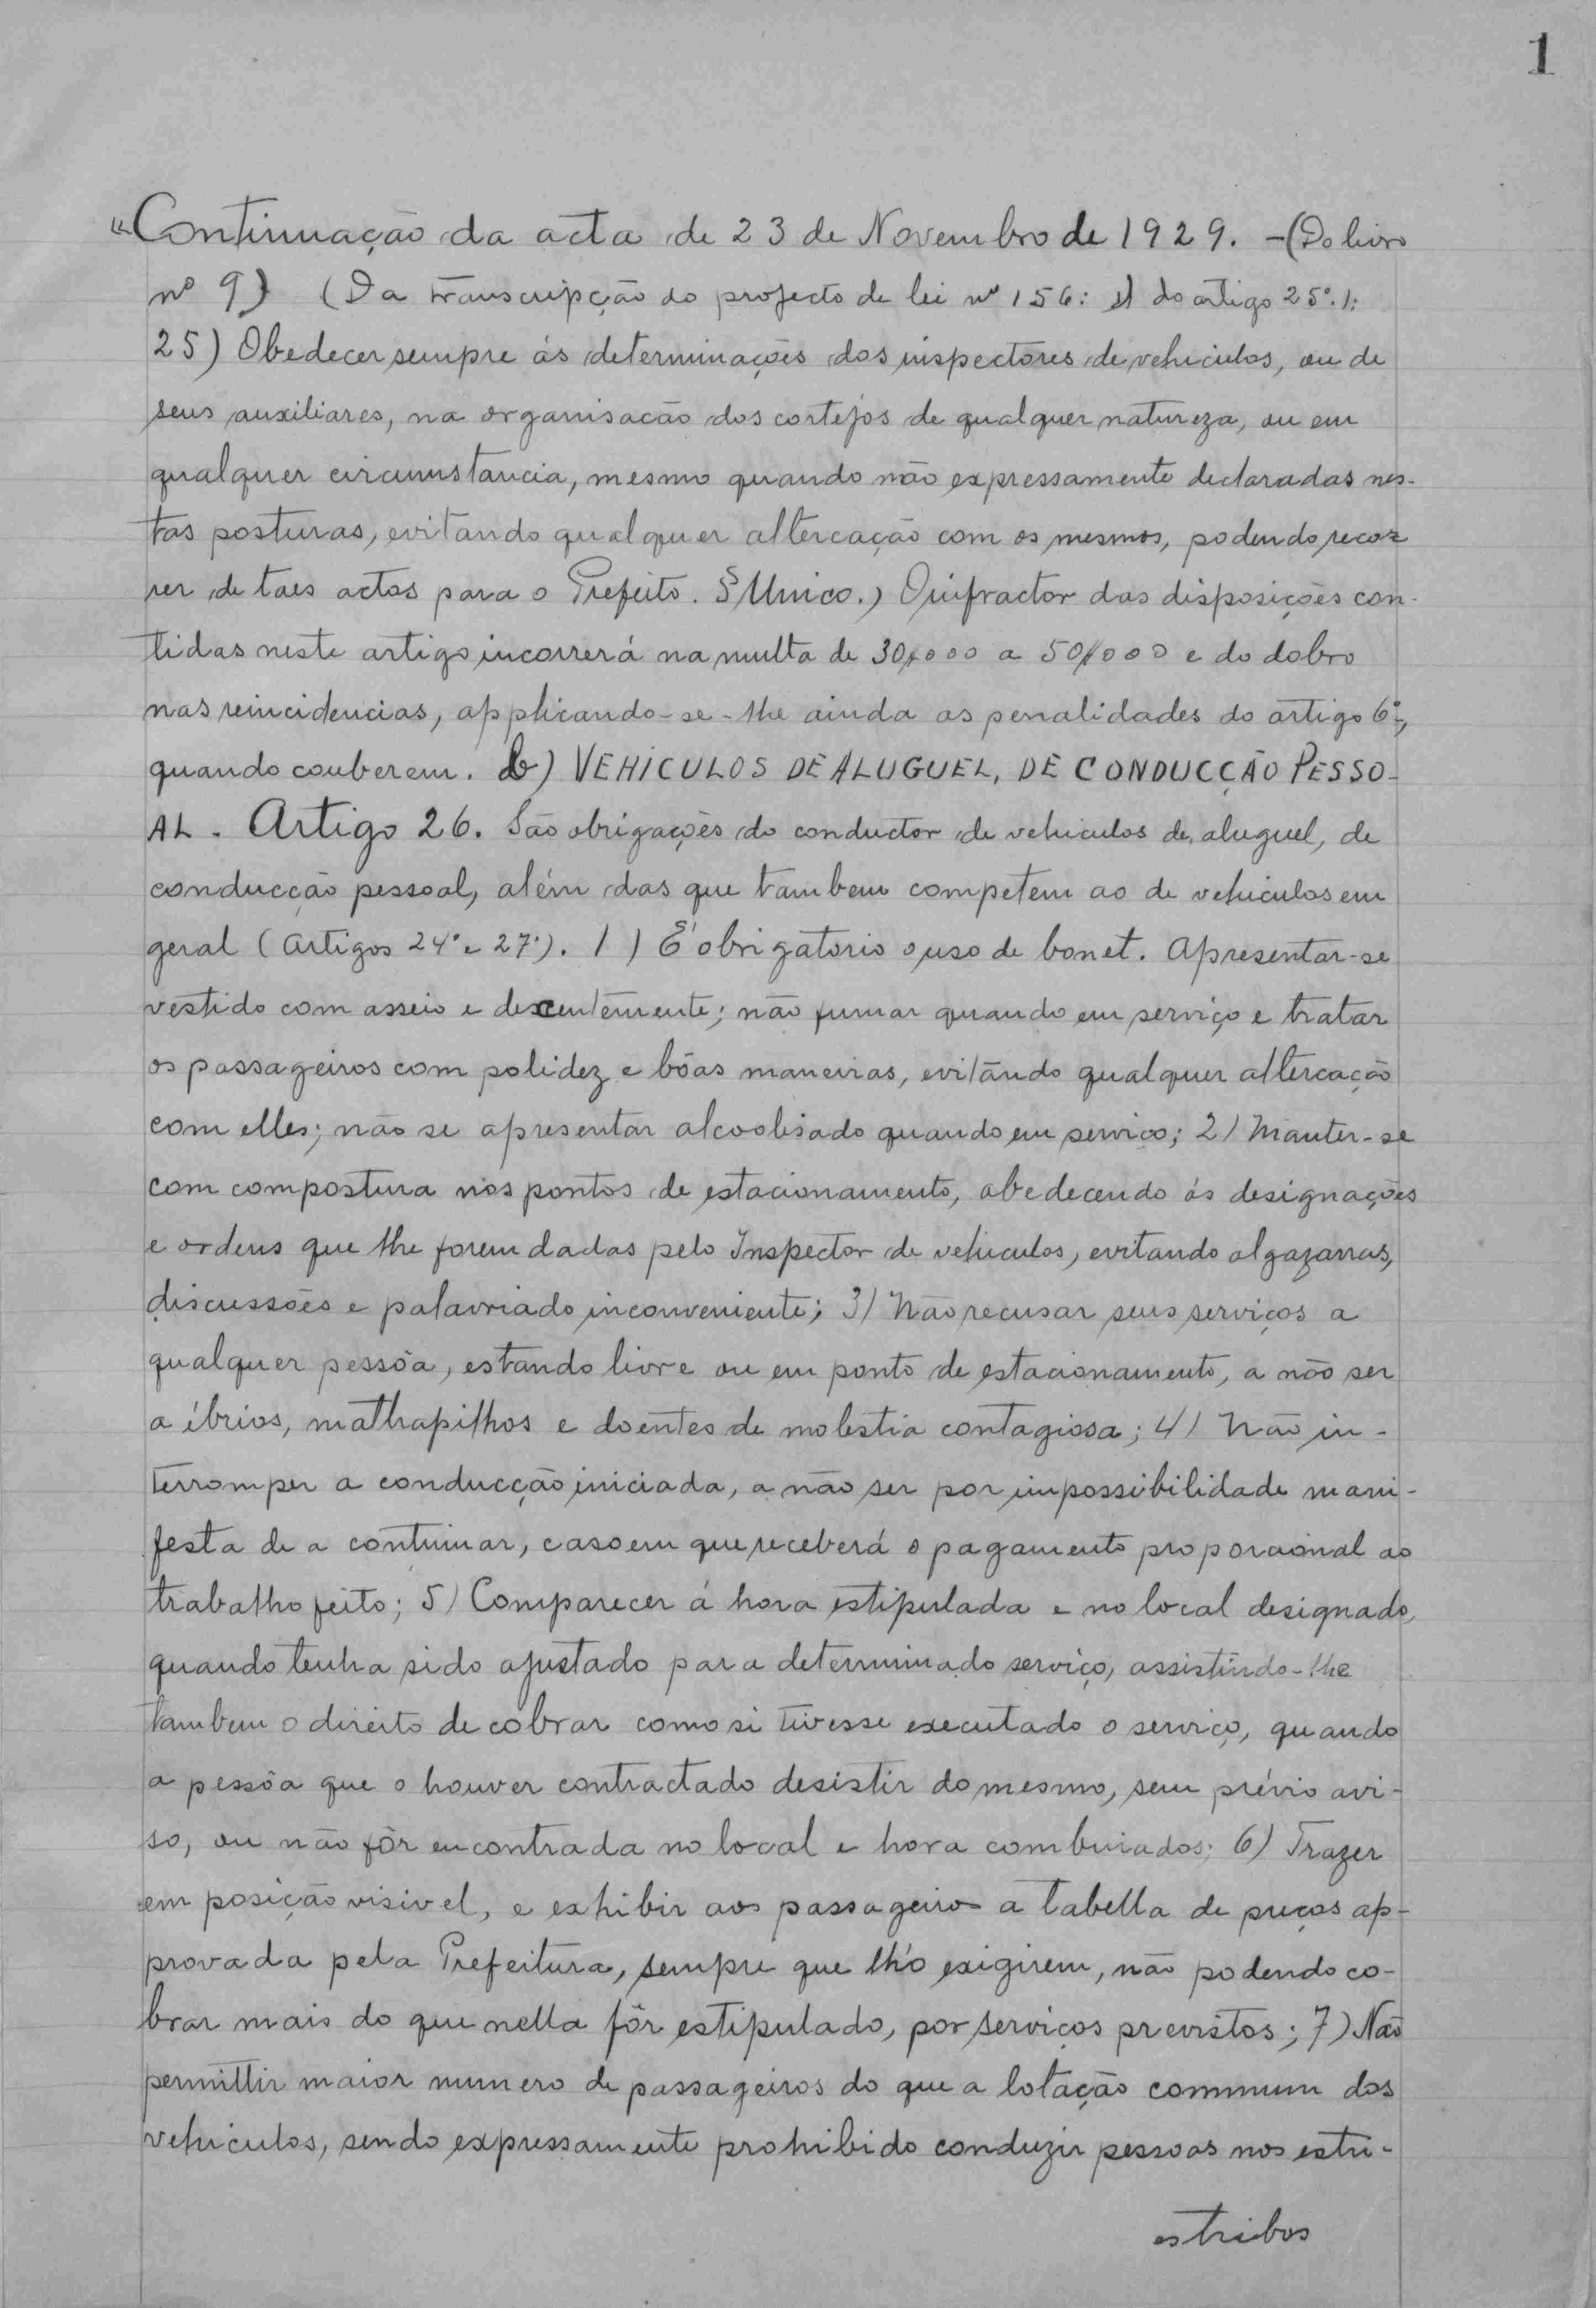 1
"Continuação da acta de 23 de Novembro de 1929. -(Do livro
nº 9) (Da transcripção do projecto de lei nº 156: do artigo 25º.):
25) Obedecer sempre ás determinações dos inspectores de vehiculos, ou de
seus auxiliares, na organisacão dos cortejos de qualquer natureza, ou em
qualquer circumstancia, mesmo quando não expressamente declaradas nes-
tas posturas, evitando qualquer altercação com os mesmos, podendo recor
rer de taes actos para o Prefeito. § Unico.) O infractor das disposições con-
tidas neste artigo incorrerá na multa de 30$000 a 50$000 e do dobro
nas reincidencias, applicando-se-lhe ainda as penalidades do artigo 6º,
quando couberem. b) VEHICULOS DE ALUGUEL, DE CONDUCÇÃO PESSO-
AL. Artigo 26. São obrigações do conductor de vehiculos de aluguel, de
conducção pessoal, além das que tambem competem ao de vehiculos em
geral (Artigos 24º e 27º). 1) É obrigatorio o uso de bonet. Apresentar-se
vestido com asseio e decentemente; não fumar quando em serviço e tratar
os passageiros com polidez e bôas maneiras, evitando qualquer altercação
com elles; não se apresentar alcoolisado quando em servico; 2) Manter-se
com compostura nos pontos de estacionamento, obedecendo ás designações
e ordens que lhe forem dadas pelo Inspector de vehiculos, evitando algazarras,
discussões e palavriado inconveniente; 3) Não recusar seus serviços a
qualquer pessôa, estando livre ou em ponto de estacionamento, a não ser
a ébrios, malhapilhos e doentes de molestia contagiosa; 4) Não in-
terromper a conducção iniciada, a não ser por impossibilidade mani-
festa de a continuar, caso em que receberá o pagamento proporcional ao
trabalho feito; 5) Comparecer á hora estipulada e no local designado,
quando tenha sido ajustado para determinado serviço, assistindo-lhe
tambem o direito de cobrar como si tivesse executado o serviço, quando
a pessôa que o houver contractado desistir do mesmo, sem prévio avi-
so, ou não fôr encontrada no local e hora combinados; 6) Trazer
em posição visivel, e exhibir aos passageiros a tabella de preços ap-
provada pela Prefeitura, sempre que lh'o exigirem, não podendo co-
brar mais do que nella fôr estipulado, por serviços previstos; 7) Não
permittir maior numero de passageiros do que a lotação commum dos
vehiculos, sendo expressamente prohibido conduzir pessoas nos estri-
estribos